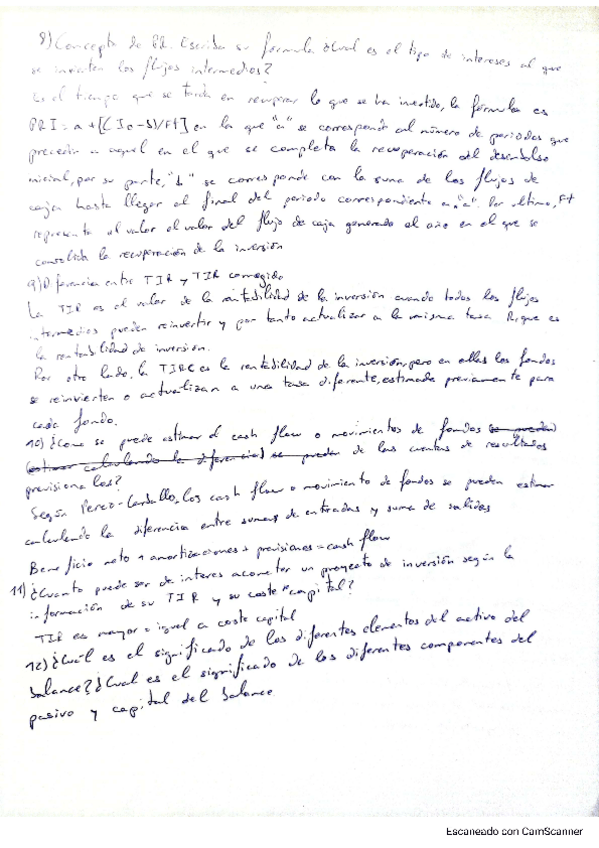 8) Concepto de PR. Escriba su formula ¿Cual es el tipo de intereses al que
se invierten los flujos intermedios?
Es el tiempo que se tarda en recuperar lo que se ha invertido, la fórmula es
PRI = a + [(Io-b)/Ft] en la que "a" se corresponde al número de periodos que
preceden a aquel en el que se completa la recuperación del desembolso
inicial, por su parte, "b" se corresponde con la suma de los flujos de
caja hasta llegar al final del periodo correspondiente en "a". Por ultimo, Ft
representa al valor al valor del flujo de caja generado el año en el que se
consolida la recuperación de la inversión
9) Diferencia entre TIR y TIR corregido
La TIR es el valor de la rentabilidad de la inversión cuando todos los flujos
intermedios pueden reinvertir y por tanto actualizar a la misma tasa Porque es
la rentabilidad de inversión.
Por otro lado, la TIRC es la rentabilidad de la inversión, pero en ellas los fondos
se reinvierten o actualizan a una tasa diferente, estimada previamente para
cada fondo.
10) ¿Como se puede estimar el cash flow o movimientos de fondos se pueden
(estimar calculando la diferencia) se pueden de las cuentas de resultados
previsionales?
Según Perez-Carballo, los cash flow o movimiento de fondos se pueden estimar
calculando la diferencia entre sumas de entradas y suma de salidas
Beneficio neto + amortizaciones + previsiones = cash flow
11) ¿Cuanto puede ser de interes acometer un proyecto de inversión según la
información de su TIR y su coste capital?
TIR es mayor o igual a coste capital
12) ¿Cuál es el significado de los diferentes elementos del activo del
balance? ¿Cual es el significado de los diferentes componentes del
pasivo y capital del balance
Escaneado con CamScanner